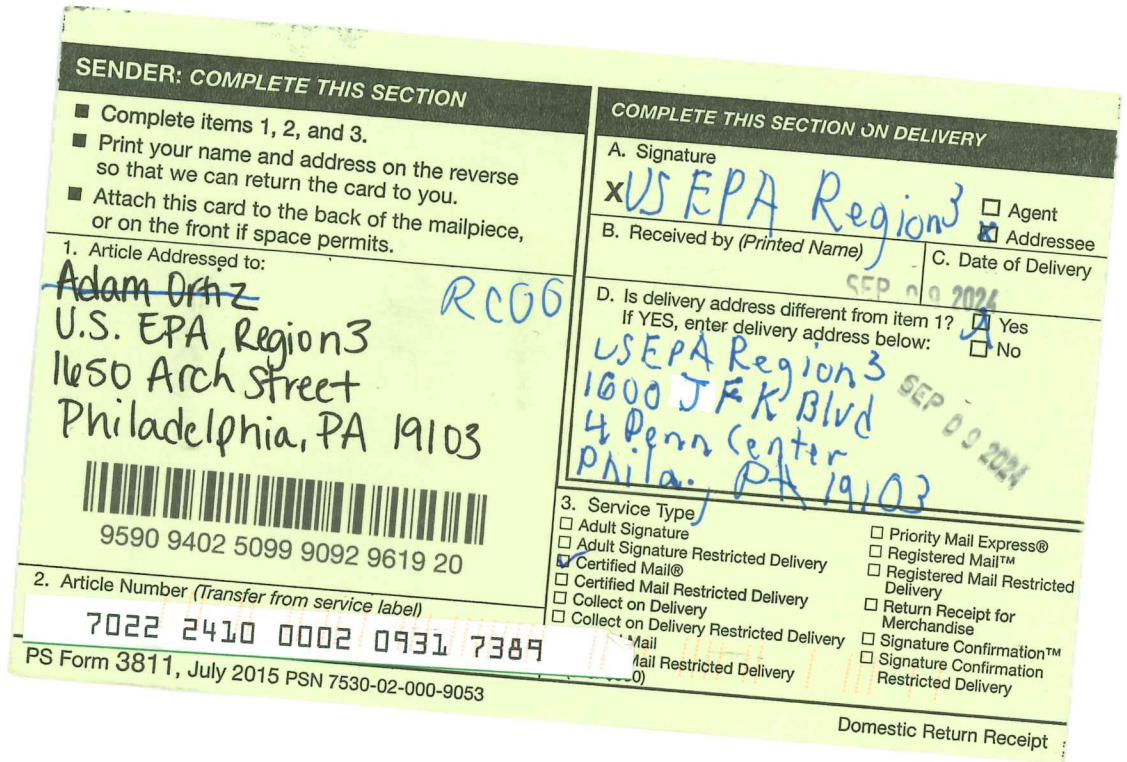 SENDER: COMPLETE THIS SECTION
■ Complete items 1, 2, and 3.
■ Print your name and address on the reverse
so that we can return the card to you.
■ Attach this card to the back of the mailpiece,
or on the front if space permits.
1. Article Addressed to:
Adam Ortiz
RC00
U.S. EPA, Region 3
1650 Arch Street
Philadelphia, PA 19103
9590 9402 5099 9092 9619 20
2. Article Number (Transfer from service label)
7022 2410 0002 0931 7389
PS Form 3811, July 2015 PSN 7530-02-000-9053
COMPLETE THIS SECTION ON DELIVERY
A. Signature
X US EPA Region 3
☐ Agent
☒ Addressee
B. Received by (Printed Name)
C. Date of Delivery
SEP 09 2024
D. Is delivery address different from item 1? ☒ Yes
If YES, enter delivery address below: ☐ No
US EPA Region 3
1600 JFK Blvd
4 Penn Center
Phila., PA 19103
SEP 09 2024
3. Service Type
☐ Adult Signature
☐ Adult Signature Restricted Delivery
☑ Certified Mail®
☐ Certified Mail Restricted Delivery
☐ Collect on Delivery
☐ Collect on Delivery Restricted Delivery
Mail
Mail Restricted Delivery
0)
☐ Priority Mail Express®
☐ Registered Mail™
☐ Registered Mail Restricted
Delivery
☐ Return Receipt for
Merchandise
☐ Signature Confirmation™
☐ Signature Confirmation
Restricted Delivery
Domestic Return Receipt